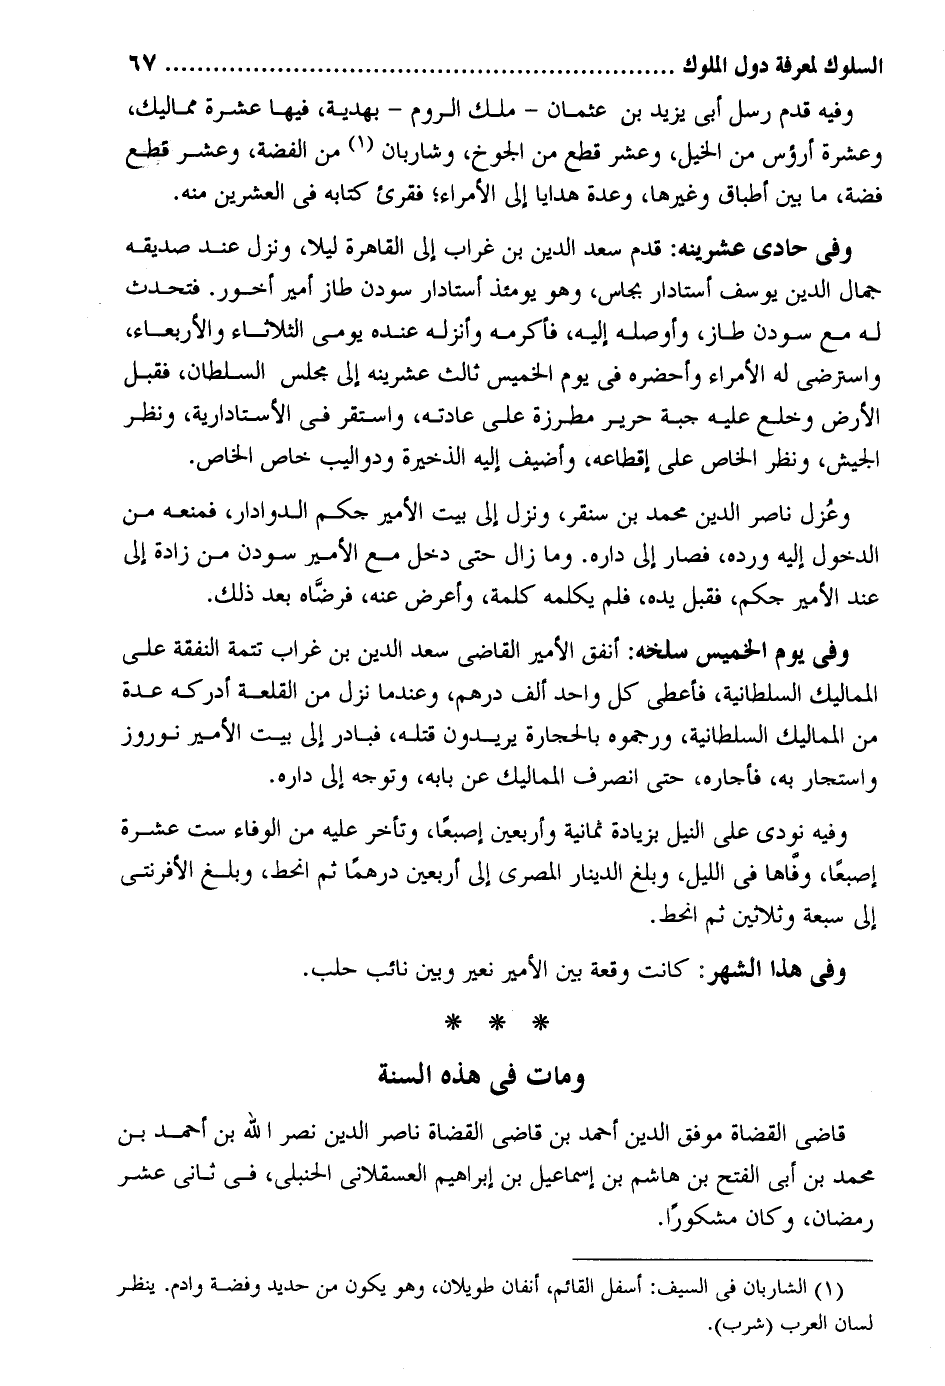 السلوك لمعرفة دول الملوك ................................................................ ٦٧
وفيه قدم رسل أبى يزيد بن عثمان – ملك الروم – بهدية، فيها عشرة مماليك،
وعشرة أرؤس من الخيل، وعشر قطع من الجوخ، وشاربان (١) من الفضة، وعشر قطع
فضة، ما بين أطباق وغيرها، وعدة هدايا إلى الأمراء؛ فقرئ كتابه فى العشرين منه.
وفى حادى عشرينه: قدم سعد الدين بن غراب إلى القاهرة ليلا، ونزل عند صديقه
جمال الدين يوسف أستادار بجاس، وهو يومئذ أستادار سودن طاز أمير أخور. فتحدث
له مع سودن طاز، وأوصله إليه، فأكرمه وأنزله عنده يومى الثلاثاء والأربعاء،
واسترضى له الأمراء وأحضره فى يوم الخميس ثالث عشرينه إلى مجلس السلطان، فقبل
الأرض وخلع عليه جبة حرير مطرزة على عادته، واستقر فى الأستادارية، ونظر
الجيش، ونظر الخاص على إقطاعه، وأضيف إليه الذخيرة ودواليب خاص الخاص.
وعُزل ناصر الدين محمد بن سنقر، ونزل إلى بيت الأمير جكم الدوادار، فمنعه من
الدخول إليه ورده، فصار إلى داره. وما زال حتى دخل مع الأمير سودن من زادة إلى
عند الأمير جكم، فقبل يده، فلم يكلمه كلمة، وأعرض عنه، فرضَّاه بعد ذلك.
وفى يوم الخميس سلخه: أنفق الأمير القاضى سعد الدين بن غراب تتمة النفقة على
المماليك السلطانية، فأعطى كل واحد ألف درهم، وعندما نزل من القلعة أدركه عدة
من المماليك السلطانية، ورجموه بالحجارة يريدون قتله، فبادر إلى بيت الأمير نوروز
واستجار به، فأجاره، حتى انصرف المماليك عن بابه، وتوجه إلى داره.
وفيه نودى على النيل بزيادة ثمانية وأربعين إصبعًا، وتأخر عليه من الوفاء ست عشرة
إصبعًا، وفَّاها فى الليل، وبلغ الدينار المصرى إلى أربعين درهمًا ثم انحط، وبلغ الأفرنتى
إلى سبعة وثلاثين ثم انحط.
وفى هذا الشهر: كانت وقعة بين الأمير نعير وبين نائب حلب.
* * *
ومات فى هذه السنة
قاضى القضاة موفق الدين أحمد بن قاضى القضاة ناصر الدين نصر الله بن أحمد بن
محمد بن أبى الفتح بن هاشم بن إسماعيل بن إبراهيم العسقلانى الحنبلى، فى ثانى عشر
رمضان، وكان مشكورًا.
(١) الشاربان فى السيف: أسفل القائم، أنفان طويلان، وهو يكون من حديد وفضة وادم. ينظر
لسان العرب (شرب).